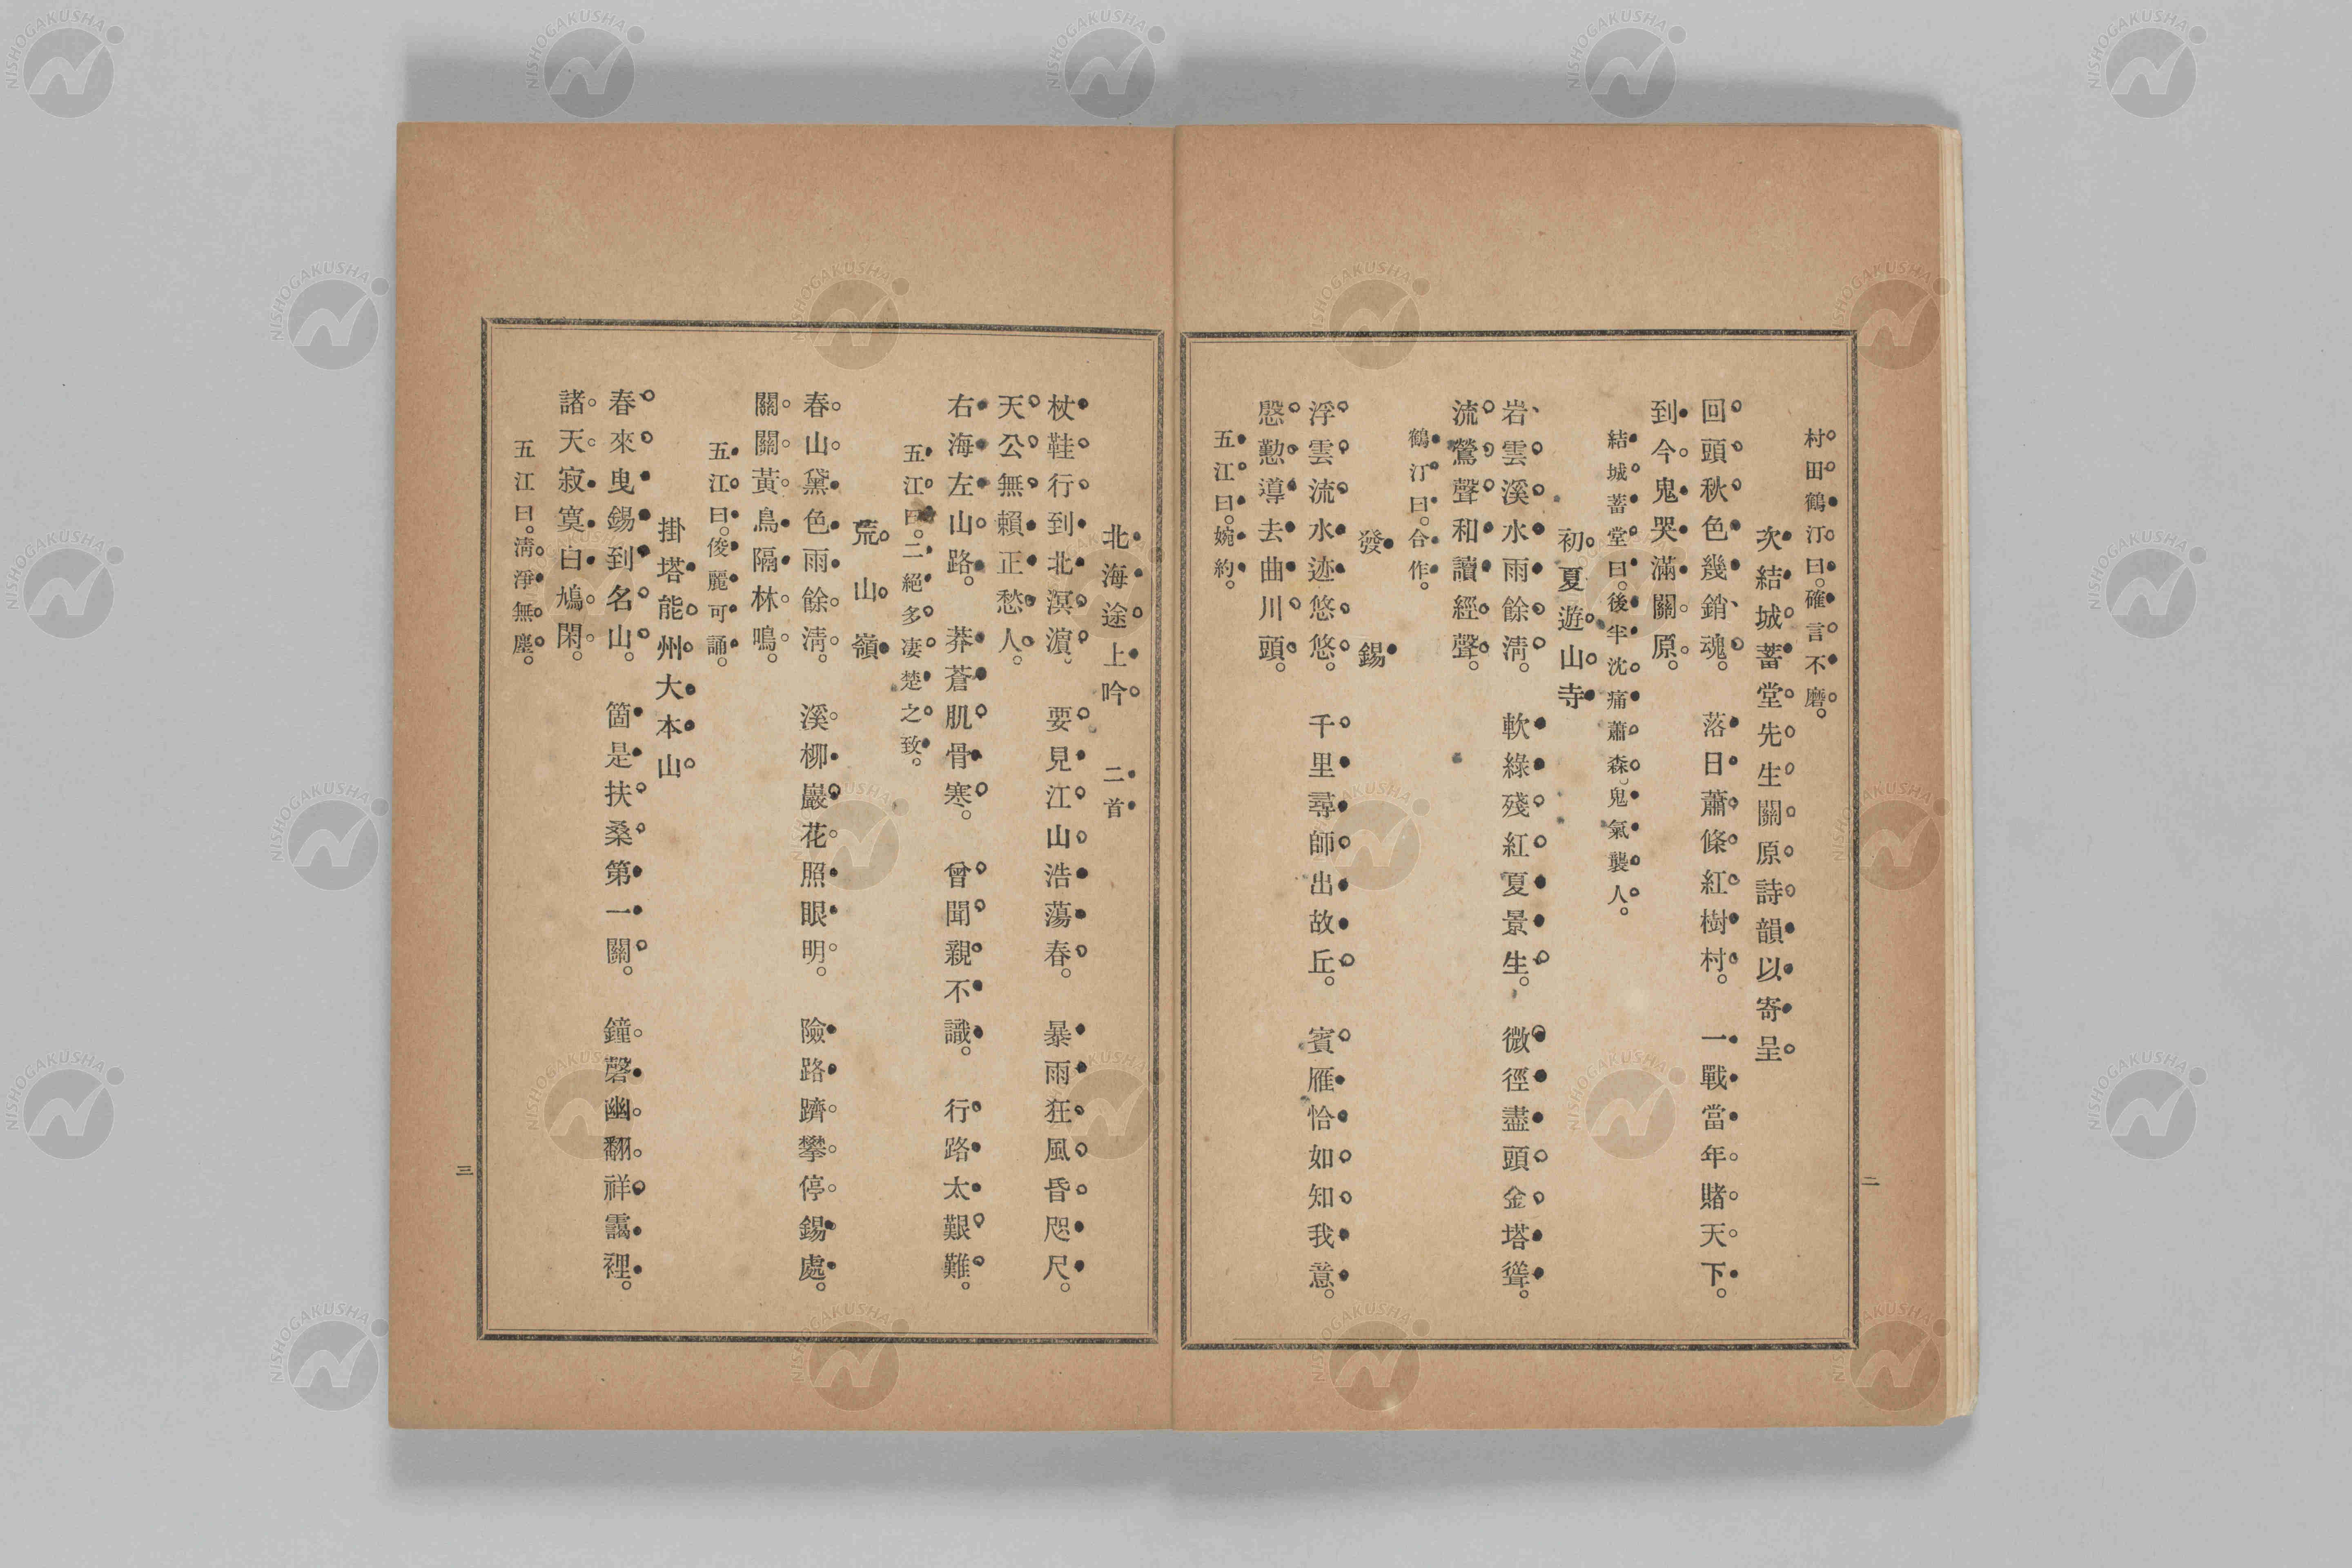 村田鶴汀曰。確言不磨。
次結城蓄堂先生關原詩韻以寄呈
回頭秋色幾銷魂。落日蕭條紅樹村。一戰當年賭天下。
到今鬼哭滿關原。
結城蓄堂曰。後半沈痛蕭森。鬼氣襲人。
初夏遊山寺
岩雲溪水雨餘淸。軟綠殘紅夏景生。微徑盡頭金塔聳。
流鶯聲和讀經聲。
鶴汀曰。合作。
發錫
浮雲流水迹悠悠。千里尋師出故丘。賓雁恰如知我意。
慇懃導去曲川頭。
五江曰。婉約。
二
北海途上吟 二首
杖鞋行到北溟濵。要見江山浩蕩春。暴雨狂風昏咫尺。
天公無賴正愁人。
右海左山路。莽蒼肌骨寒。曾聞親不識。行路太艱難。
五江曰。二絕多凄楚之致。
荒山嶺
春山黛色雨餘淸。溪柳巖花照眼明。險路躋攀停錫處。
關關黃鳥隔林鳴。
五江曰。俊麗可誦。
掛塔能州大本山
春來曳錫到名山。箇是扶桑第一關。鐘磬幽翻祥靄裡。
諸天寂寞白鳩閑。
五江曰。淸淨無塵。
三
NISHOGAKUSHA